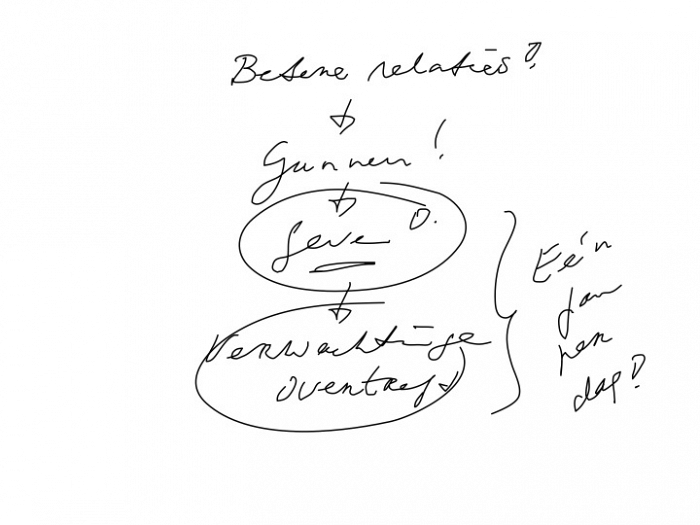 Betere relaties?
Gunnen!
Geven!
Verwachtingen
overtreft
Eén
per
dag!